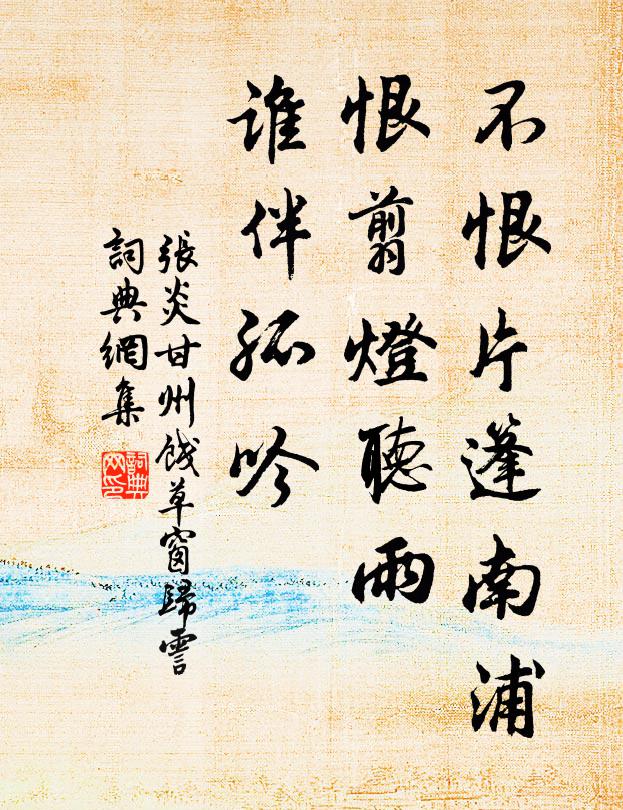 不恨片篷南浦
恨翦燈聽雨
誰伴孤吟
張炎甘州餞草窗歸霅
詞典網集
詞典
网印